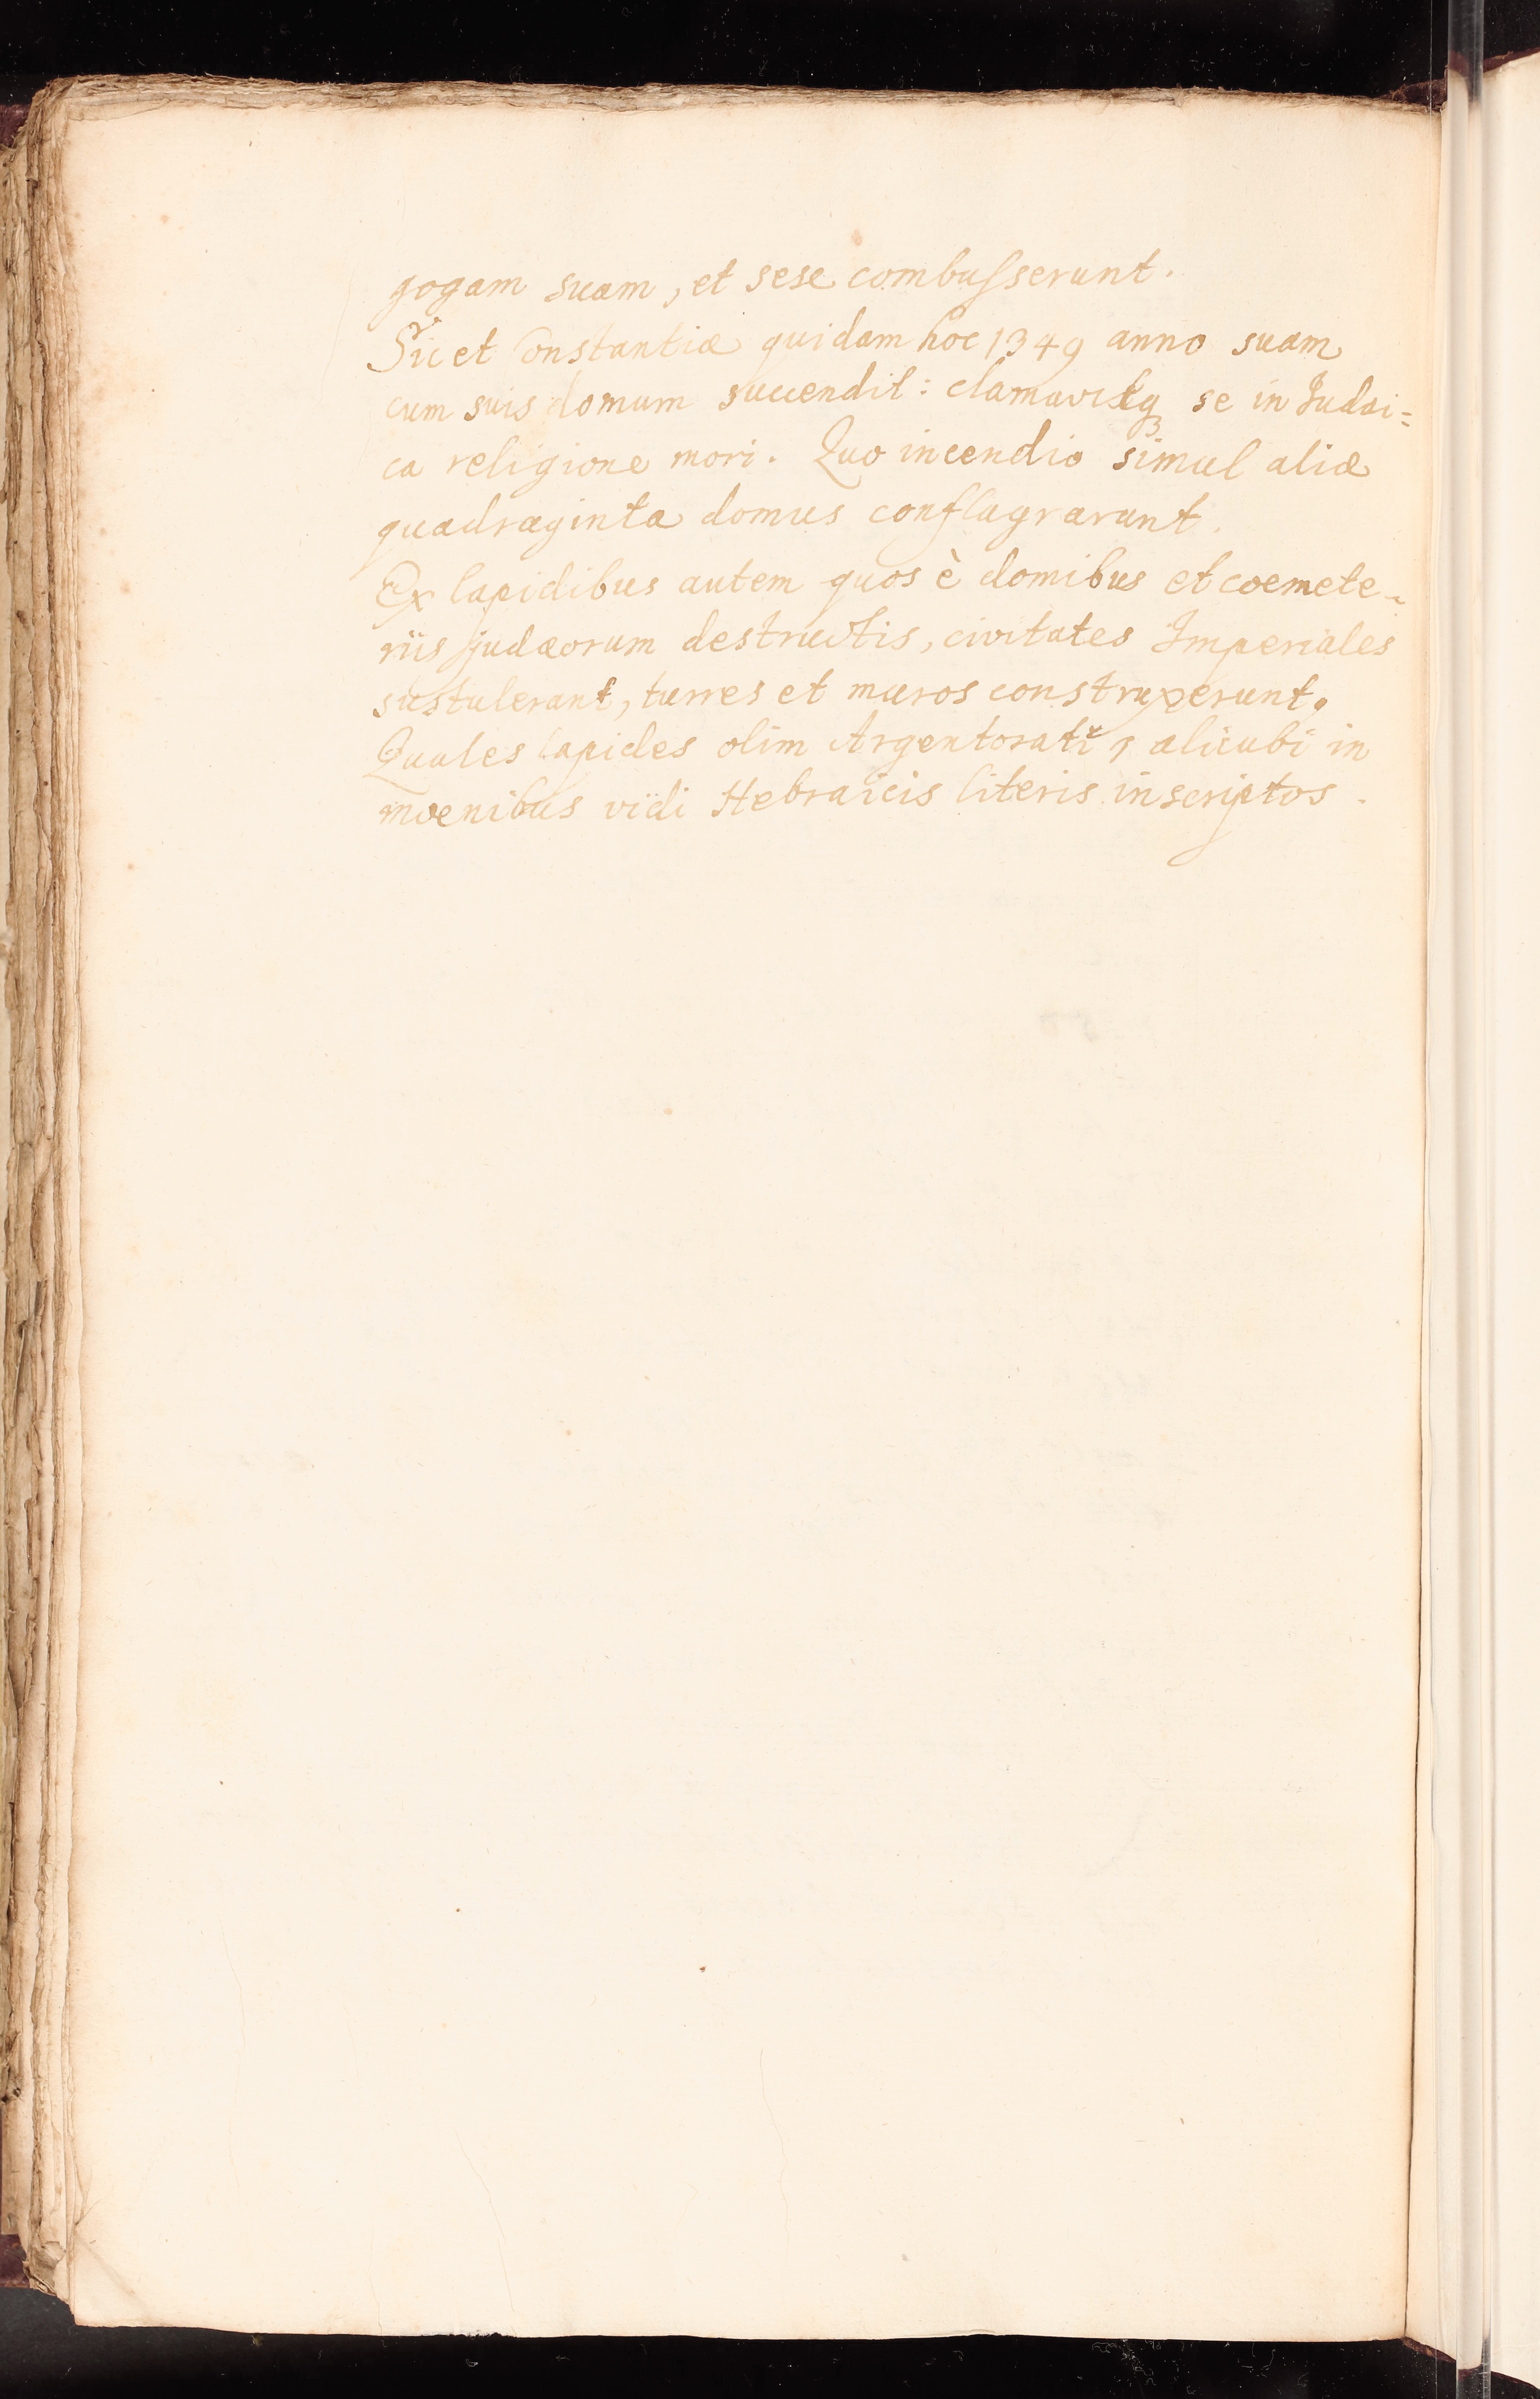 gogam suam, et sese combuſserunt.
Sic et Constantiæ quidam hoc 1349 anno suam
cum suis domum succendit: clamavitq₃ se in Judai=
ca religione mori. Quo incendio simul aliæ
quadraginta domus conflagrarunt.
Ex lapidibus autem quos è domibus et coemete-
riis judæorum destructis, civitates Imperiales
sustulerant, turres et muros construxerunt.
Quales lapides olim Argentorati, alicubi in
moenibus vidi Hebraicis literis inscriptos.